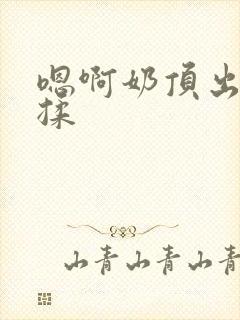 嗯啊奶頂出
揉
山青山青山青